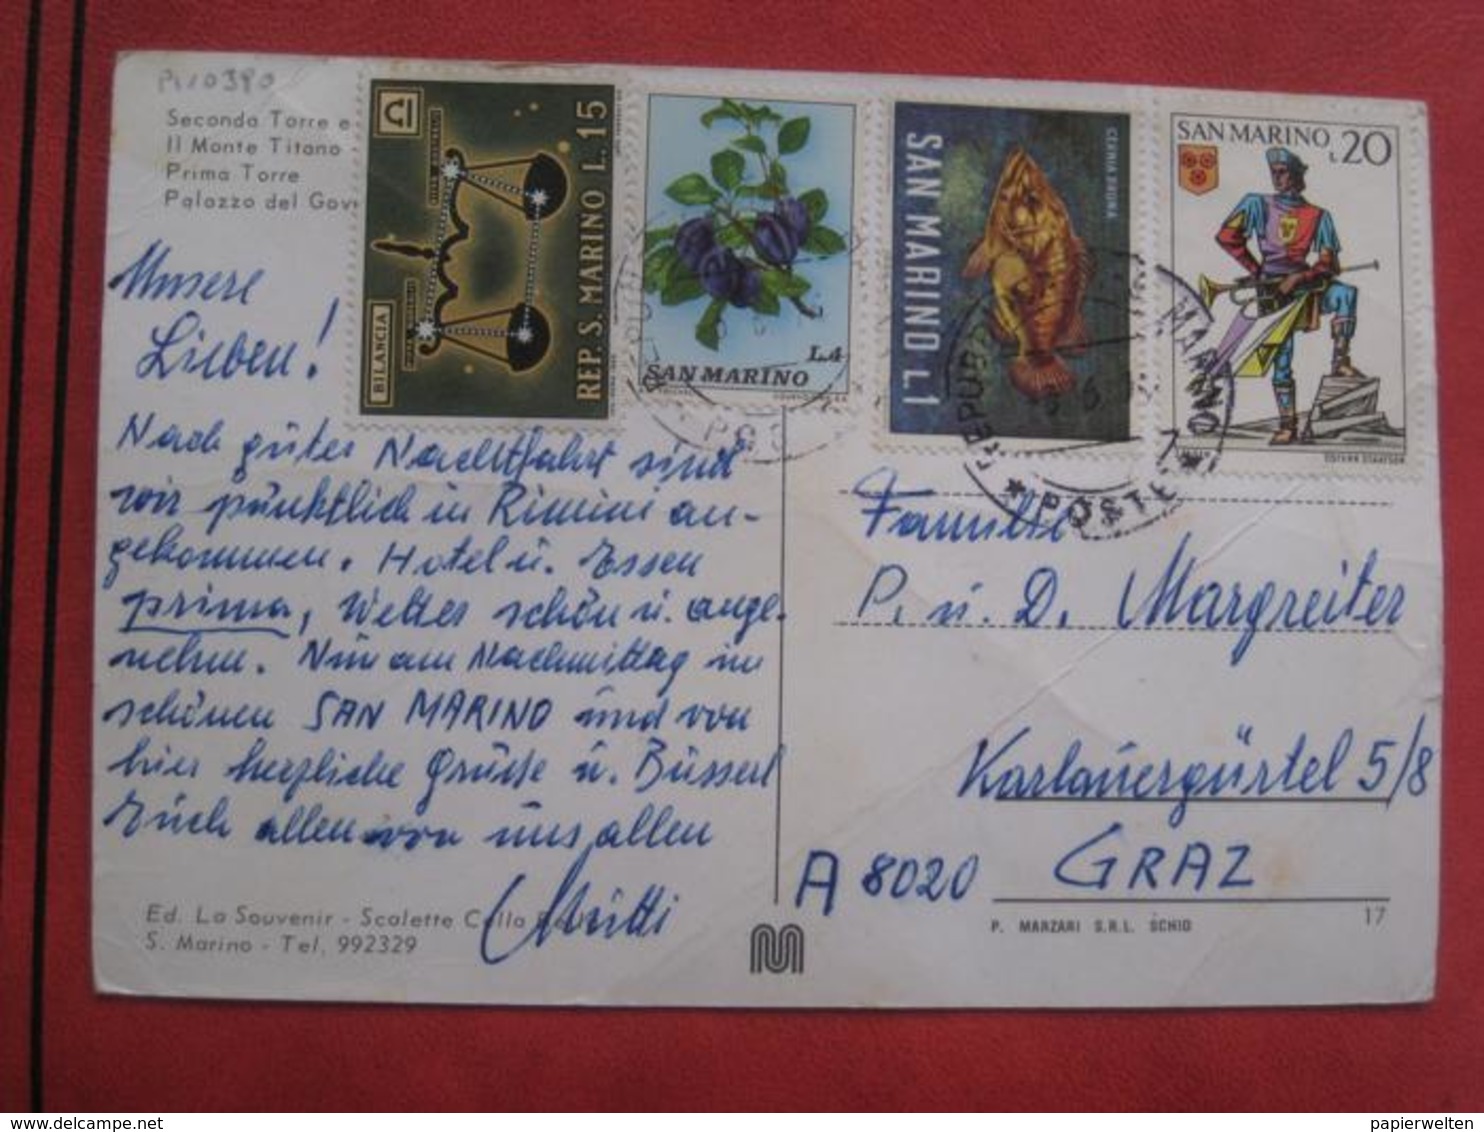 Pi10390
Seconda Torre e
Il Monte Titano -
Prima Torre
Palazzo del Gov
BILANCIA
REP. S. MARINO L. 15
L.4
SAN MARINO
CERNIA BRUNA
SAN MARINO L1
SAN MARINO L.20
REPUBB
S. MARINO
* POSTE *
POS
Unsere
Lieben!
Nach guter Nachtfahrt sind
wir pünktlich in Rimini an-
gekommen. Hotel u. Essen
prima, Wetter schön u. ange-
nehm. Nun am Nachmittag im
schönen SAN MARINO und von
hier herzliche Grüsse u. Busserl
Euch allen von uns allen
Mutti
Familie
P. u. D. Margreiter
Karlauergürtel 5/8
A 8020 GRAZ
Ed. La Souvenir - Scalette Collo
S. Marino - Tel. 992329
P. MANZARI S.R.L. SCHIO
17
www.delcampe.net
papierwelten